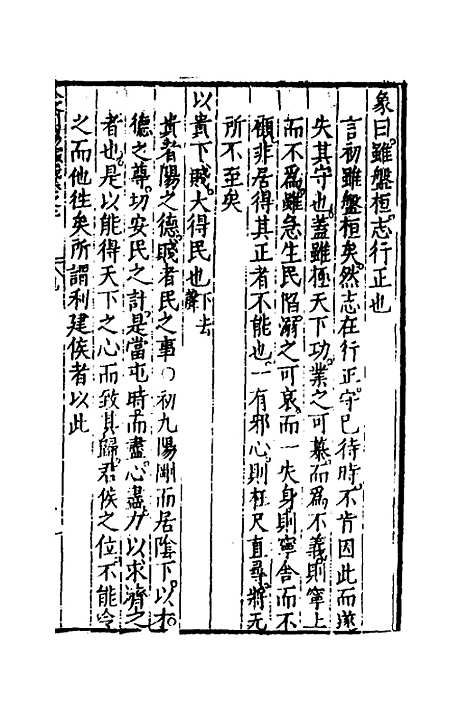 象曰雖盤桓志行正也
言初雖盤桓矣然志在行正守已待時不肯因此而遂
失其守也蓋雖極天下功業之可慕而爲不義則寧上
而不爲雖急生民陷溺之可哀而一失身則寧舍而不
顧非居得其正者不能也一有邪心則枉尺直尋將无
所不至矣
以貴下賤大得民也下去聲
貴者陽之德賤者民之事○初九陽剛而居陰下以才
德之尊切安民之計是當屯時而盡心盡力以求濟之
者也是以能得天下之心而致其歸君侯之位不能令
之而他往矣所謂利建侯者以此